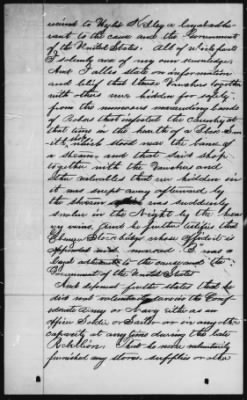 resided to Wyle Kelley a loyal adhe-
rant to the cause and the Government
of the United States. All of which facts
I solemly are of my own knowledge.
And I also state on information
and belief that these Vouchers together
with others were hidden for safety
from the numerous marauding bands
of Rebels that infested the Country at
that time in the hearth of a Blacksmith
shop, which stood near the bank of
a stream and that said shop
together with the Vouchers and
other valuables that were hidden in
it was swept away afterward by
the stream which was suddenly
swolen in the Night by the heavy
rains. And he further certifies that
Ebenezer
was a
loyal adherent to the cause and the
Government of the United States
And deponent further states that he
did not voluntarily serve in the Conf-
ederate Army or Navy either as an
officer Soldier or Sailor or in any other
capacity at any time during the late
Rebellion. That he never voluntarily
furnished any stores, supplies or other